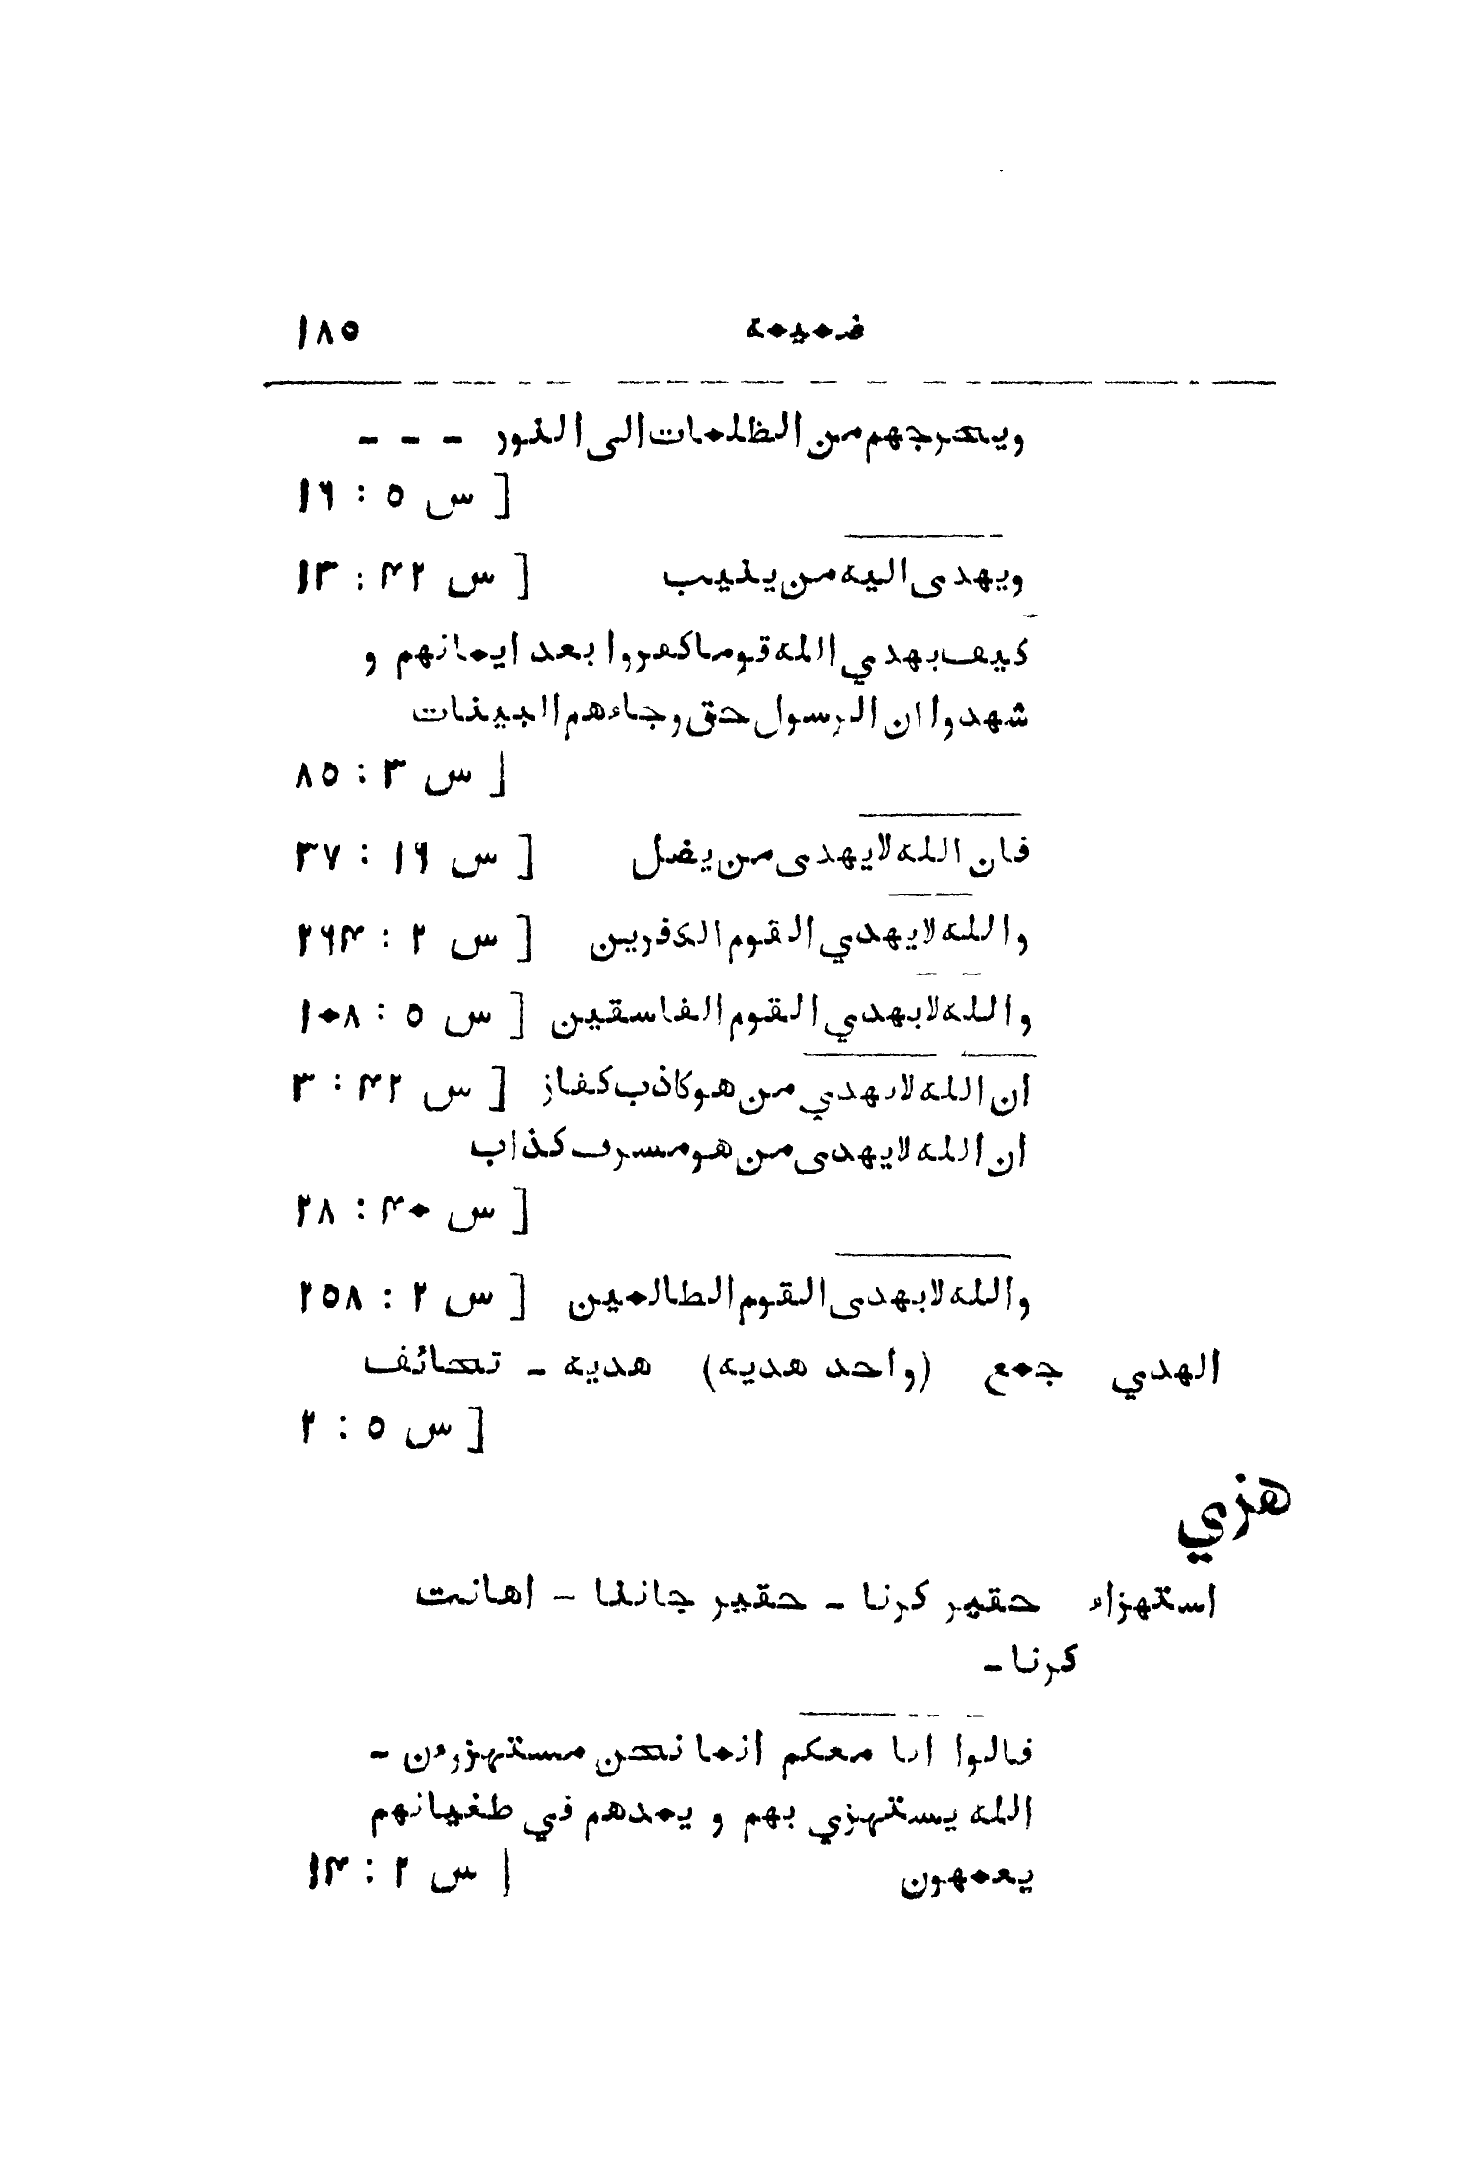 ضمیمه ۱۸۵
ویخرجهم من الظلمات الی النور - - -
[ س ۵ : ۱۶
ویهدی الیه من ینیب [ س ۴۲ : ۱۳
کیف یهدي الله قوما کفروا بعد ایمانهم و
شهدوا ان الرسول حق وجاءهم البینات
[ س ۳ : ۸۵
فان الله لایهدی من یضل [ س ۱۶ : ۳۷
والله لایهدي القوم الکفرین [ س ۲ : ۲۶۴
والله لایهدي القوم الفاسقین [ س ۵ : ۱۰۸
ان الله لایهدي من هو کاذب کفار [ س ۴۲ : ۳
ان الله لایهدی من هو مسرف کذاب
[ س ۴۰ : ۲۸
والله لایهدی القوم الظالمین [ س ۲ : ۲۵۸
الهدي جمع (واحد هدیه) هدیه - تحائف
[ س ۵ : ۲
هزي
استهزاء حقیر کرنا - حقیر جاننا - اهانت
کرنا -
قالوا انا معکم انما نحن مستهزءون -
الله یستهزي بهم و یمدهم في طغیانهم
یعمهون [ س ۲ : ۱۴